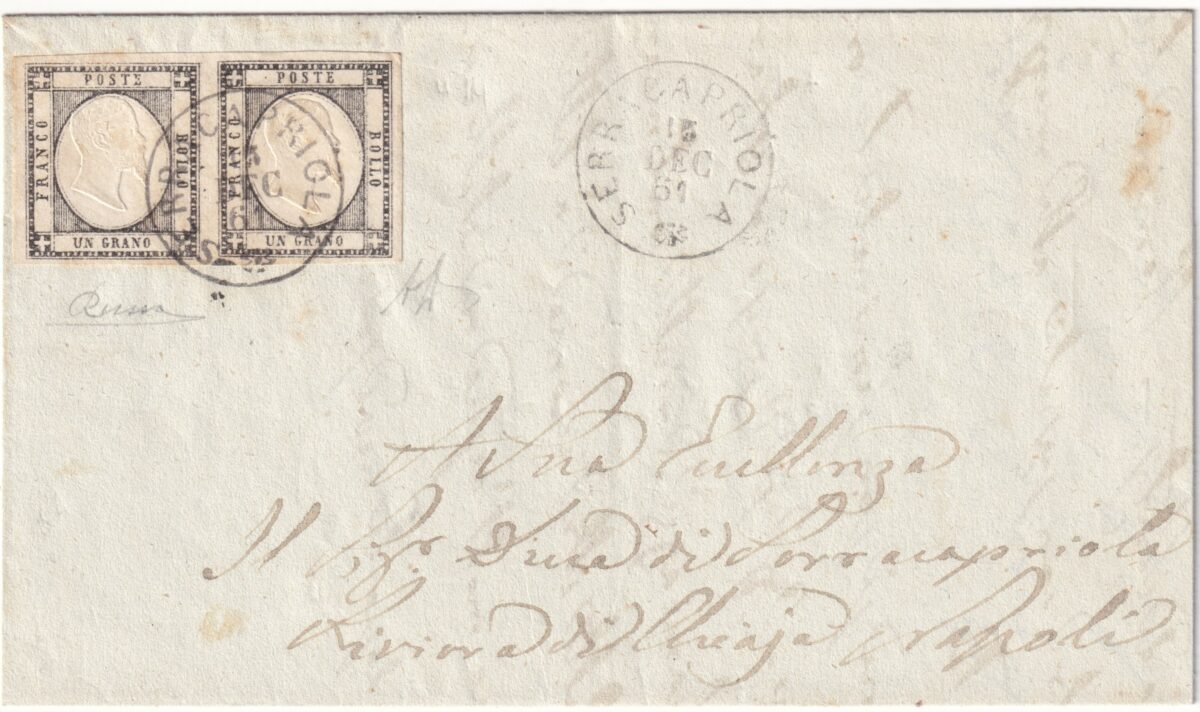 POSTE
FRANCO
BOLLO
UN GRANO
POSTE
FRANCO
BOLLO
UN GRANO
SERRACAPRIOLA
DEC
6
SERRACAPRIOLA
15
DEC
61
A Sua Eccellenza
Il Sigr Duca di Serracapriola
Riviera di Chiaja Napoli